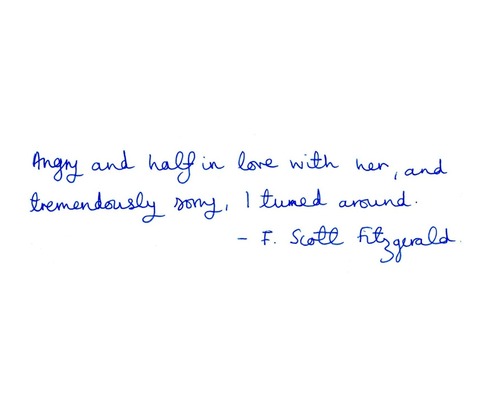 Angry and half in love with her, and
tremendously sorry, I turned around.
- F. Scott Fitzgerald.